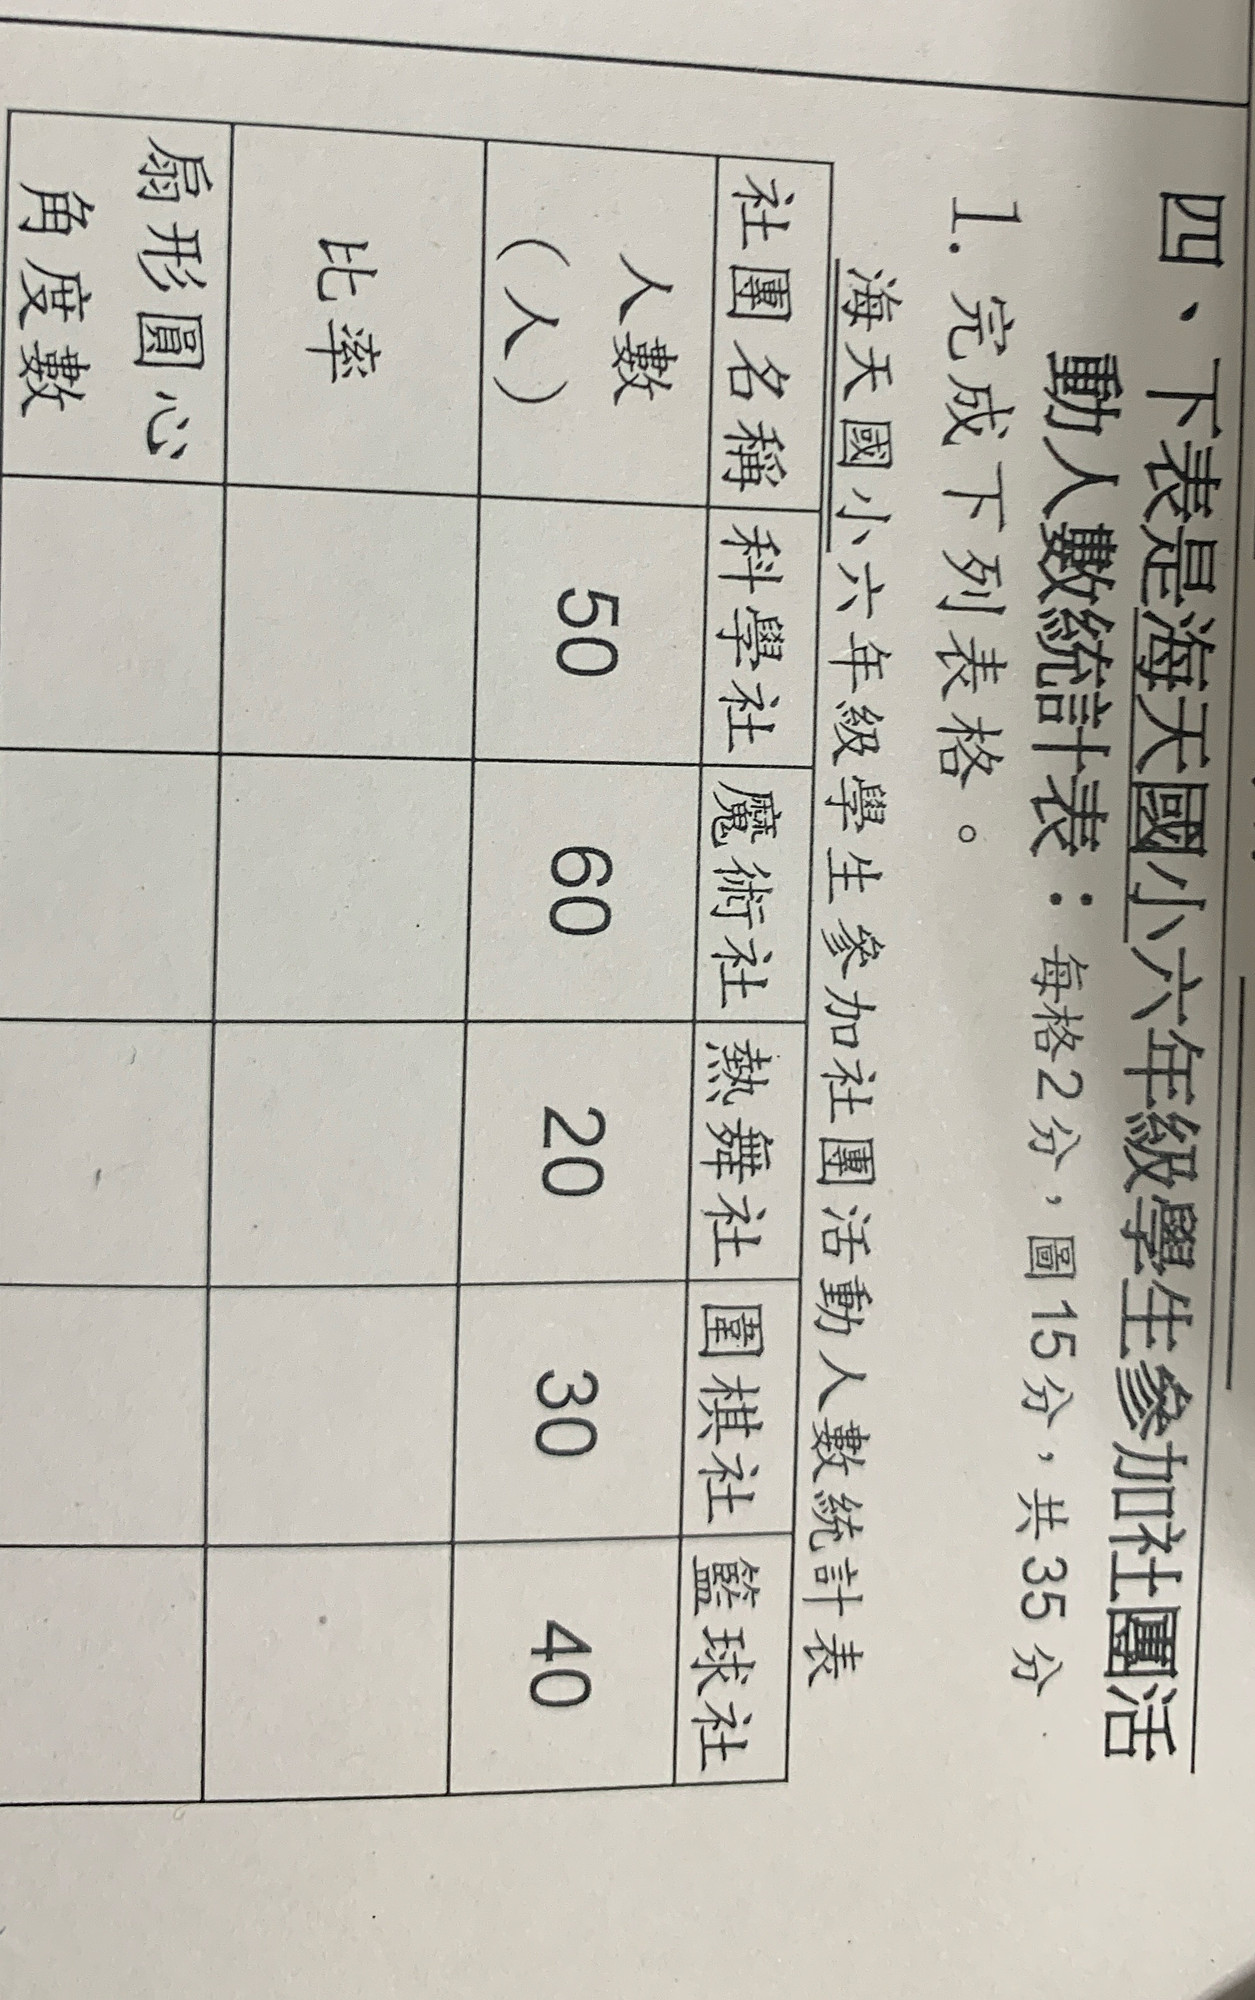 四、下表是海天國小六年級學生參加社團活
動人數統計表：每格2分，圖15分，共35分
1. 完成下列表格。
海天國小六年級學生參加社團活動人數統計表
社團名稱 科學社 魔術社 熱舞社 圍棋社 籃球社
人數
（人） 50 60 20 30 40
比率
扇形圓心
角度數